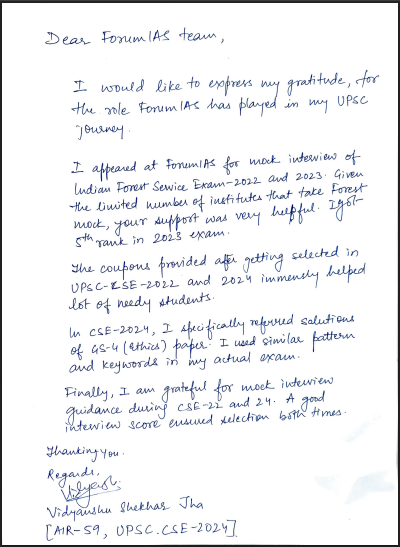 Dear ForumIAS team,
I would like to express my gratitude, for
the role ForumIAS has played in my UPSC
journey.
I appeared at ForumIAS for mock interview of
Indian Forest Service Exam-2022 and 2023. Given
the limited number of institutes that take Forest
mock, your support was very helpful. I got
5th rank in 2023 exam.
The coupons provided after getting selected in
UPSC-CSE-2022 and 2024 immensely helped
lot of needy students.
In CSE-2024, I specifically referred solutions
of GS-4 (Ethics) paper. I used similar pattern
and keywords in my actual exam.
Finally, I am grateful for mock interview
guidance during CSE-22 and 24. A good
interview score ensured selection both times.
Thanking you.
Regards,
Vidyanshu Shekhar Jha
[AIR-59, UPSC.CSE-2024]